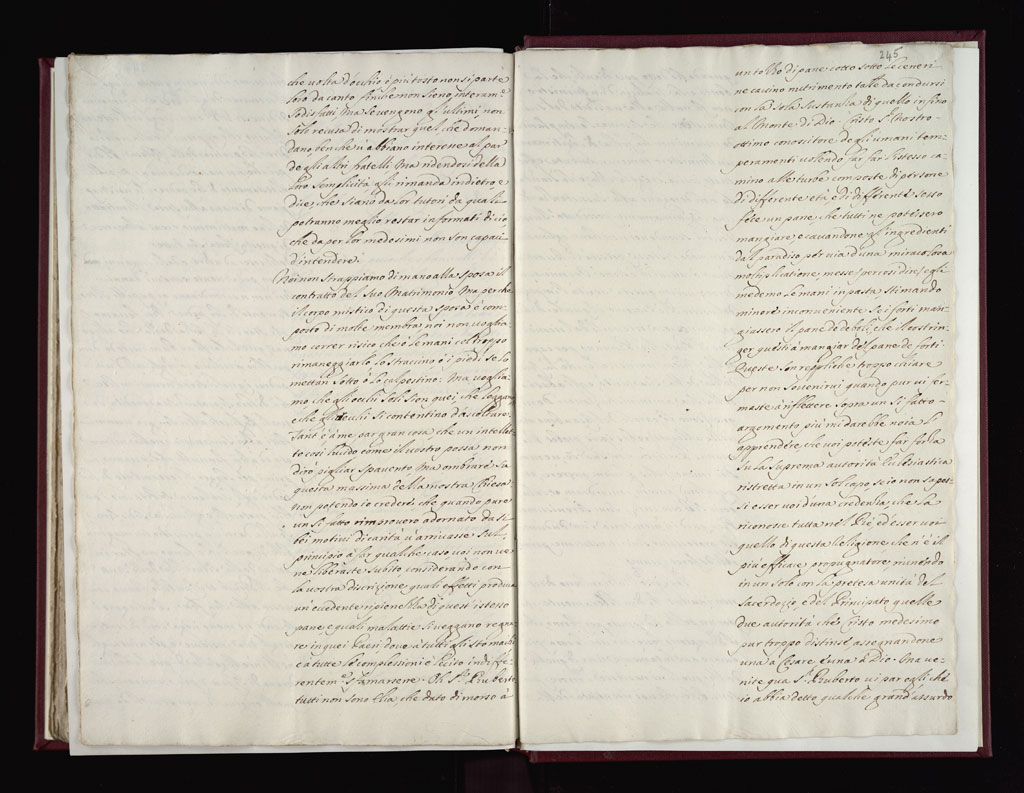 che volta d'occhio è piutosto non si parte
loro da canto finche non sieno interam.e
sodisfatti. Ma se vengono gl'ultimi, non
solo recusa di mostrar quel, che doman-
dano, benche v'abbiano interesse al par
degli altri fratelli. Ma ridendosi della
loro semplicità gli rimanda indietro, e
dice, che siano da lor tutori da quali
potranno meglio restar informati di ciò
che da per lor medesimi non son capaci
d'intendere.
Noi non strappiamo di mano alla sposa il
contratto del suo Matrimonio. Ma perche
il corpo mistico di questa sposa è com-
posto di molte membra noi non voglia-
mo correr risico che ò le mani col troppo
rimaneggiarlo lo straccino ò i piedi se lo
mettan sotto ò lo calpestino. Ma voglia-
mo che gli occhi soli sien quei, che leggano
e che gli orecchi si contentino d'ascoltare.
Tant'è à me par gran cosa che un intellet-
to così lucido come il vostro possa non
dirò pigliar spavento ma ombrare da
questa massima della nostra Chiesa
non potendo io credere, che quando pure
un sì fatto rimprovero adornato da su
bei motivi di carità v'arrivasse sul
principio à far qualche caso voi non ve
ne liberaste subito considerando con
la vostra discrizione quali effetti produca
un'eccedente ripienezza di quest'istesso
pane, e quali malattie si veggano regna-
re in quei Paesi dove à tutti gli stomachi
e à tutte le complessioni è lecito indiffe-
rentem.e sfamarsene. Oh S.r Bruberto
tutti non sono Elia, che dato di morso à
245
un tozzo di pane cotto sotto le ceneri
ne cavino nutrimento tale da condursi
con la sola sustanza di quello infino
al Monte di Dio. Cristo S. Nostro
ottimo conoscitore degli umani tem-
peramenti volendo far far l'istesso ca-
mino alle turbe composte di persone
di differente età e di differente sesso
fece un pane che tutti ne potessero
mangiare, e cavandone gl'ingredienti
dal paradiso per via d'una miracolosa
moltiplicatione messe per così dire egli
medemo le mani in pasta stimando
minore inconveniente se i forti man-
giassero il pane di deboli, che il costrin-
ger questi à mangiar del pane de forti.
Queste son repliche troppo chiare
per non sovvenirvi quando pur vi fer-
maste à riflettere sopra un sì fatto
argomento più mi darebbe noia l'
apprendere che voi poteste far forza
su la suprema autorità Eclesiastica
ristretta in un sol capo se io non sapes-
si esser voi d'una credenza, che la
riconosce tutta nel Rè, ed esser voi
quello di questa Religione che n'è il
più efficace propugnatore munendo
in un solo con la pretesa unità del
Sacerdozio, e del Principato quelle
due autorità che Cristo medesimo
pur troppo distinse assegnandone
una à Cesare e una à Dio. Ma ve-
nite qua S.r Bruberto vi par egli che
io abbia detto qualche grand'assurdo